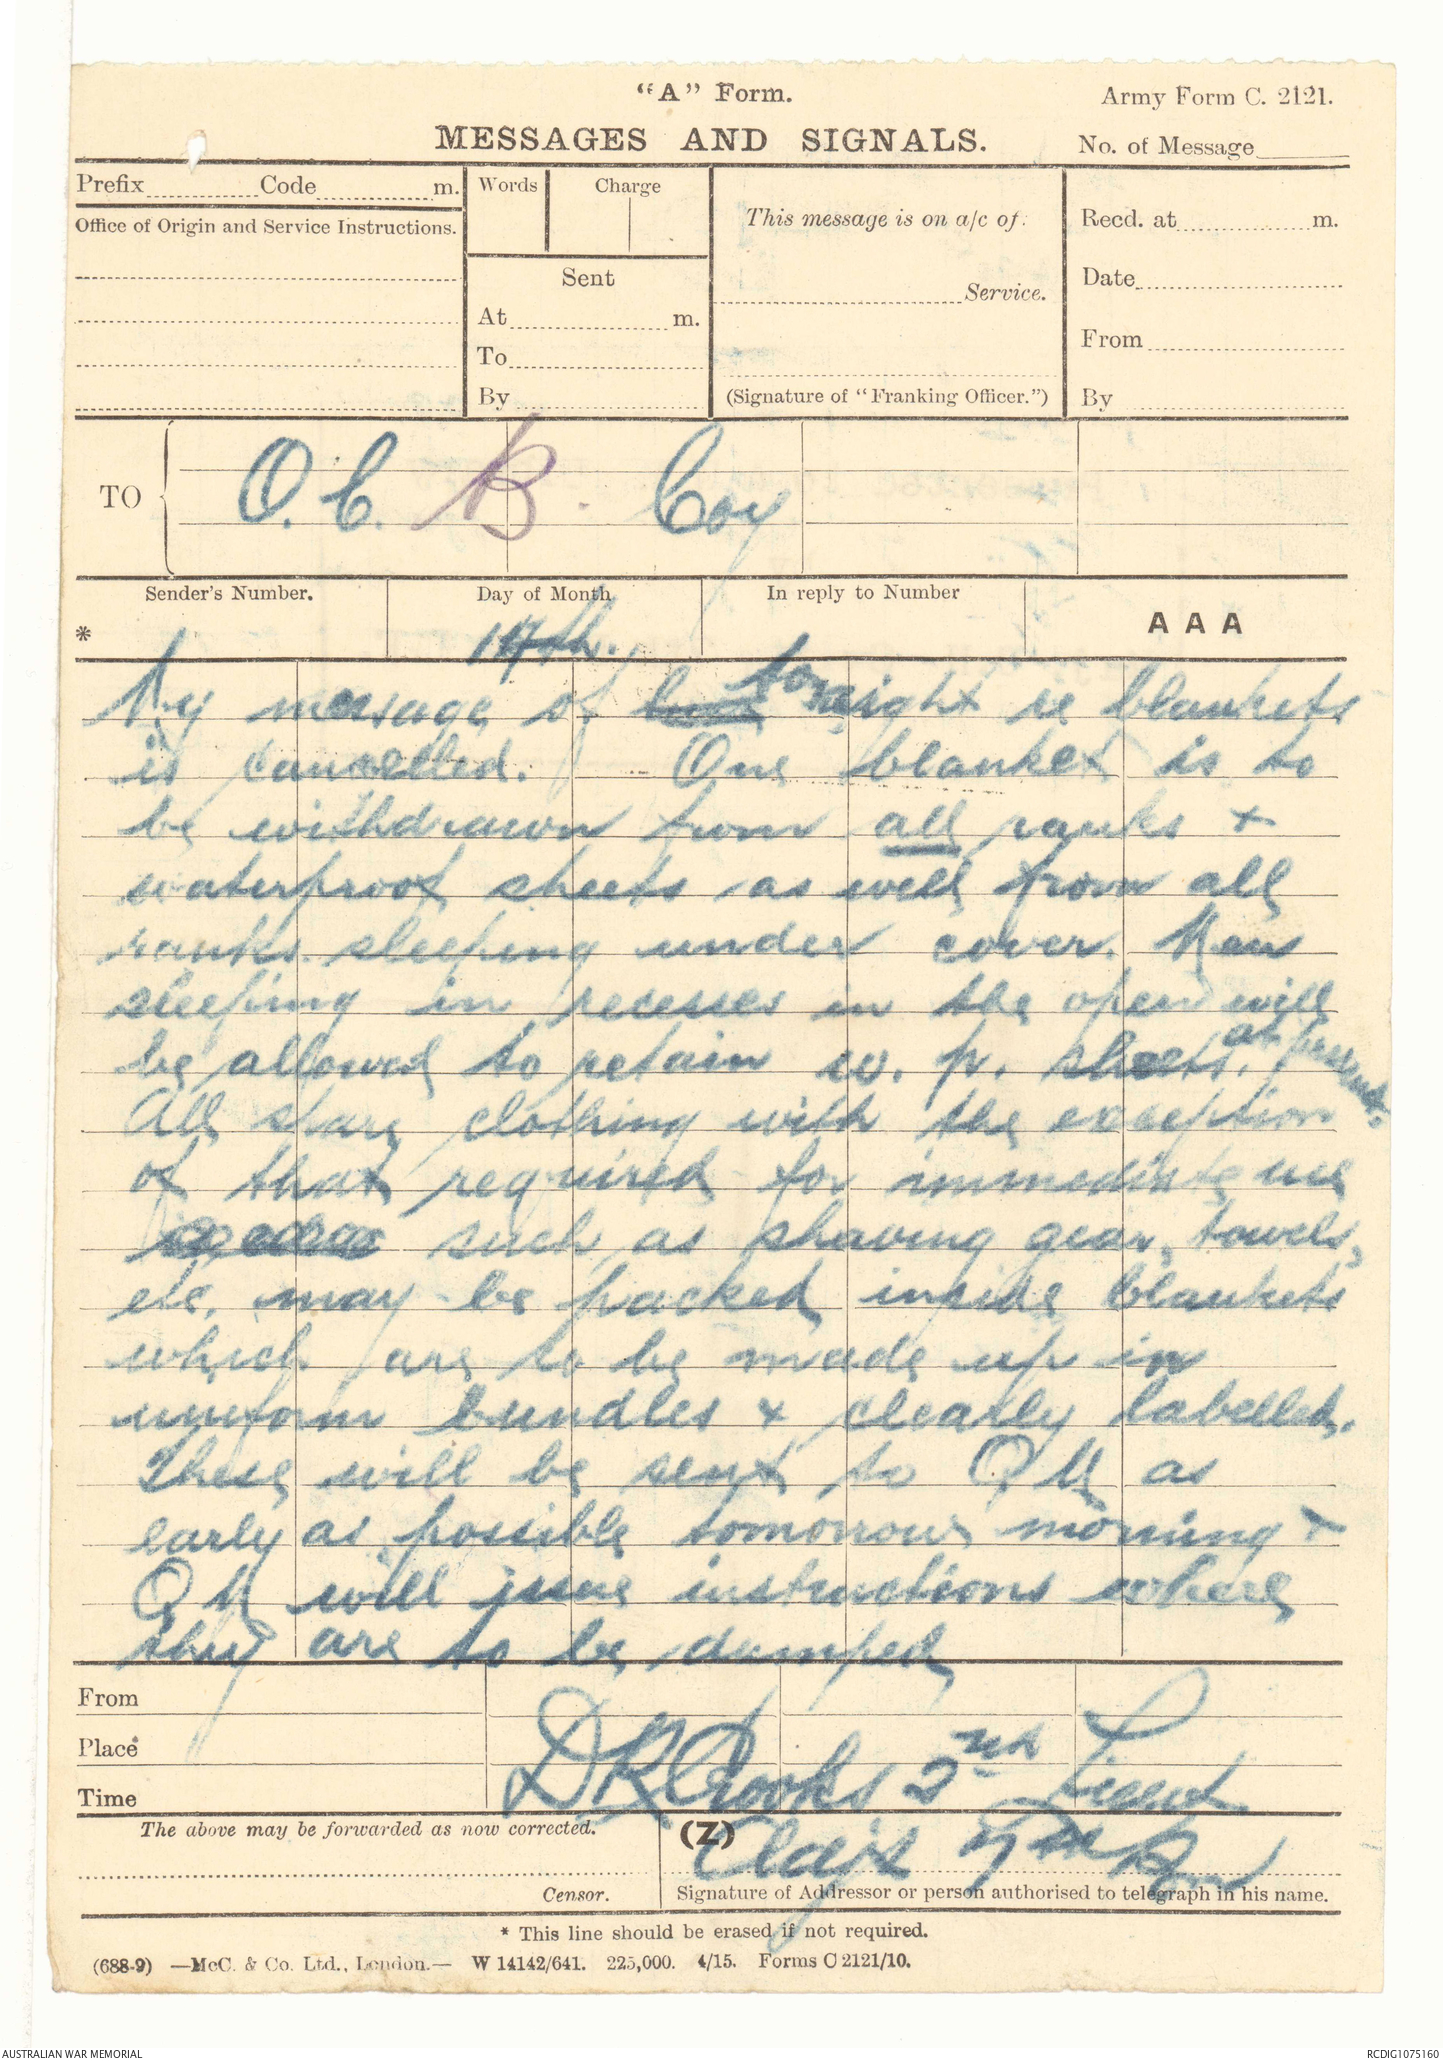 "A" Form.
Army Form C. 2121.
MESSAGES AND SIGNALS.
No. of Message
Prefix Code m.
Words Charge
This message is on a/c of:
Recd. at m.
Office of Origin and Service Instructions.
Sent
Service.
Date
At m.
To
From
By
(Signature of "Franking Officer.")
By
TO
O.C. B. Coy
Sender's Number.
Day of Month
In reply to Number
AAA
*
14th.
My message of tonight re blankets
is cancelled. One blanket is to
be withdrawn from all ranks +
waterproof sheets as well from all
ranks sleeping under cover. Men
sleeping in recesses in the open will
be allowed to retain w. p. sheets. at present.
All spare clothing with the exception
of that required for immediate use
such as shaving gear, towels,
etc. may be packed inside blankets
which are to be made up in
uniform bundles + clearly labelled.
These will be sent to QM as
early as possible tomorrow morning +
QM will issue instructions where
they are to be dumped
From
Place
Time
DKCrooks 2nd Lieut
The above may be forwarded as now corrected.
(Z)
Censor.
Signature of Addressor or person authorised to telegraph in his name.
* This line should be erased if not required.
(688-9) —McC. & Co. Ltd., London.— W 14142/641. 225,000. 4/15. Forms C 2121/10.
AUSTRALIAN WAR MEMORIAL
RCDIG1075160